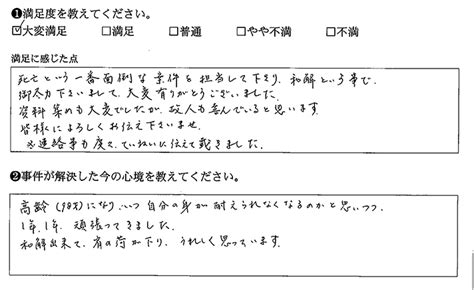 ❶満足度を教えてください。
☑大変満足 □満足 □普通 □やや不満 □不満
満足に感じた点
死亡という一番面倒な案件を担当して下さり、和解という事で、
御尽力下さいまして、大変有りがとうございました。
資料集めも大変でしたが、故人も喜んでいると思います。
皆様によろしくお伝え下さいませ。
※連絡等も度々、ていねいに伝えて戴きました。
❷事件が解決した今の心境を教えてください。
高齢(98才)になり、いつ自分の身が耐えられなくなるのかと思いつつ、
1年、1年、頑張ってきました。
和解出来て、肩の荷が下り、うれしく思っています。